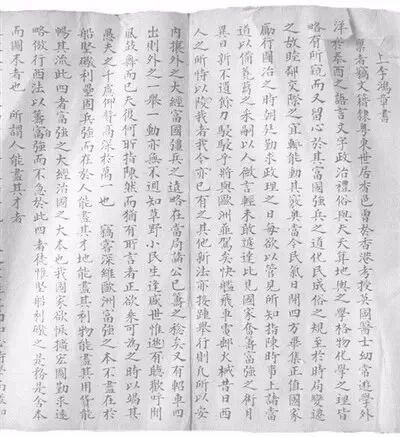 上李鴻章書
者竊文籍隸粵東世居香邑曾於香港考授英國醫士幼嘗遊學外
洋於泰西之語言文字政治禮俗與夫天算地輿之學格物化學之理皆
略有所窺而又留心於其富國強兵之道化民成俗之規至於時局變遷
之故睦鄰交際之宜輒能動其竅奧當今民氣日開四方畢集正值國家
勵行圖治之時朝廷勤求政理之日每欲以管見所知指陳時事上諸當
道以備芻蕘之采嗣以人微言輕未敢遽達比見國家奮籌富強之術月
異日新不遺餘力駸駸乎將與歐洲並駕矣快艦飛車電郵火械昔日西
人之所恃以陵我者我今亦已有之其他新法亦接踵舉行則凡所以安
內攘外之大經富國彊兵之遠略在當局諸公已籌之稔矣又有軺車四
出則外之一舉一動亦無不週知草野小民生逢盛世惟逖有聽歡呼聞
風鼓舞而已夫復何所指陳然而猶有所言者正欲乘可為之時以竭其
愚夫之千慮仰贊高深於萬一也 竊嘗深維歐洲富強之本不盡在於
船堅礮利壘固兵強而在於人能盡其才地能盡其利物能盡其用貨能
暢其流此四者富強之大經治國之大本也我國家欲恢擴宏圖勤求遠
略倣行西法以籌富強而不急於此四者徒惟堅船利礮之是務是舍本
而圖末者也 所謂人能盡其才者